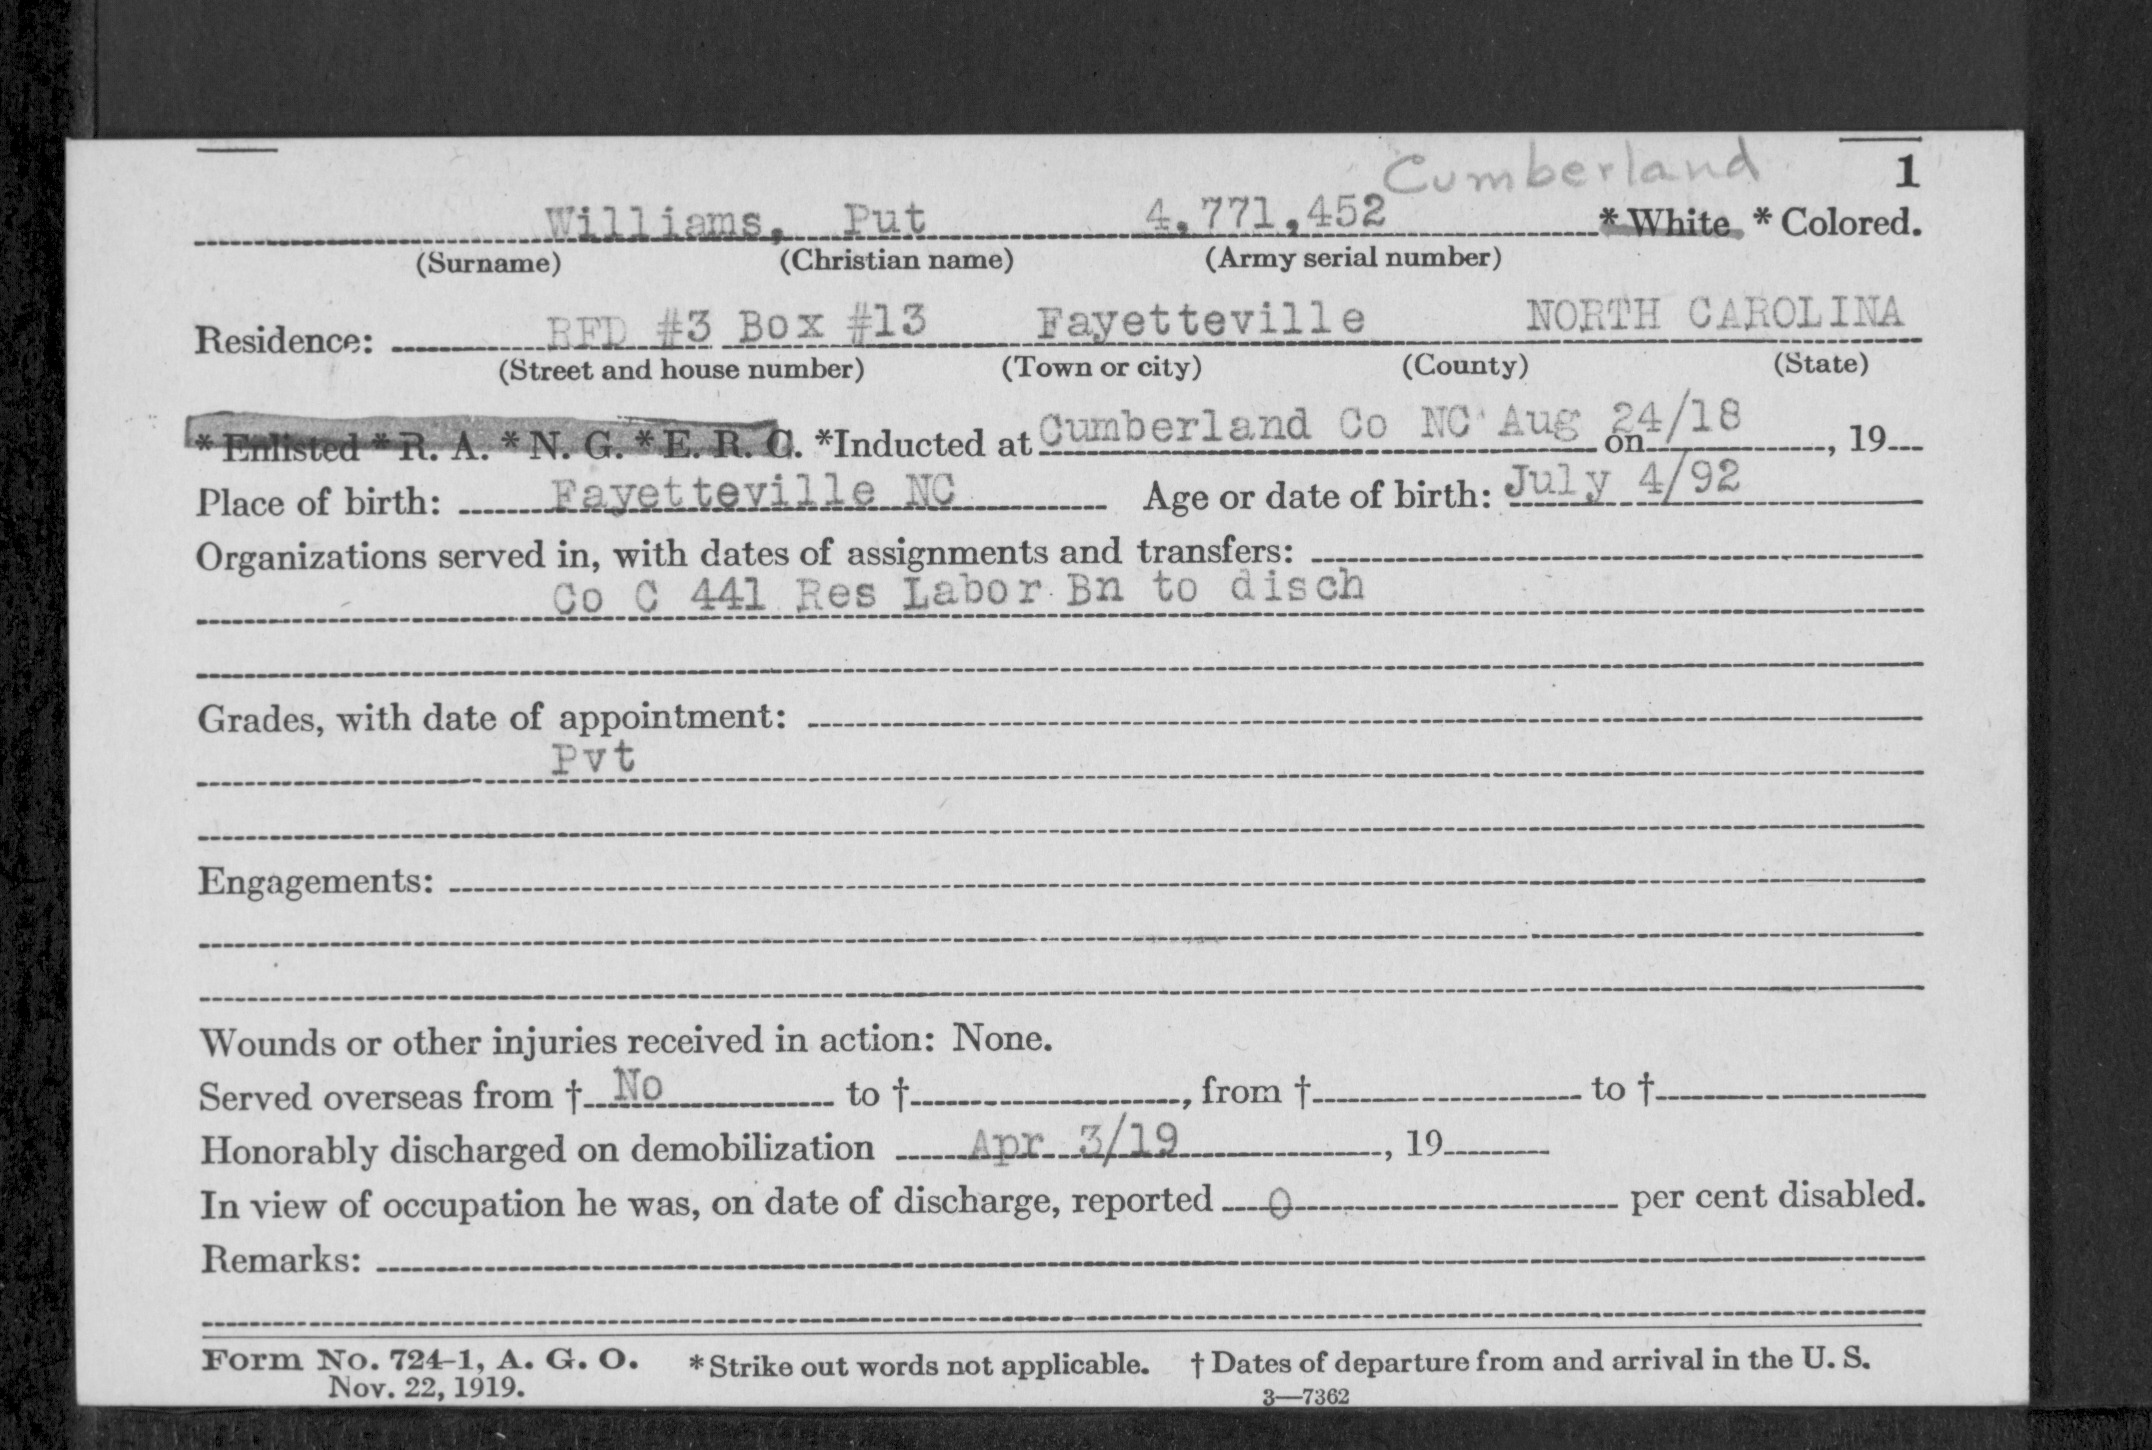 Cumberland 1
Williams, Put 4,771,452 * White * Colored.
(Surname) (Christian name) (Army serial number)
Residence: RFD #3 Box #13 Fayetteville NORTH CAROLINA
(Street and house number) (Town or city) (County) (State)
* Enlisted * R. A. * N. G. * E. R. C. *Inducted at Cumberland Co NC Aug 24/18 on , 19
Place of birth: Fayetteville NC Age or date of birth: July 4/92
Organizations served in, with dates of assignments and transfers:
Co C 441 Res Labor Bn to disch
Grades, with date of appointment:
Pvt
Engagements:
Wounds or other injuries received in action: None.
Served overseas from † No to † , from † to †
Honorably discharged on demobilization Apr 3/19 , 19
In view of occupation he was, on date of discharge, reported 0 per cent disabled.
Remarks:
Form No. 724-1, A. G. O. * Strike out words not applicable. † Dates of departure from and arrival in the U. S.
Nov. 22, 1919. 3—7362